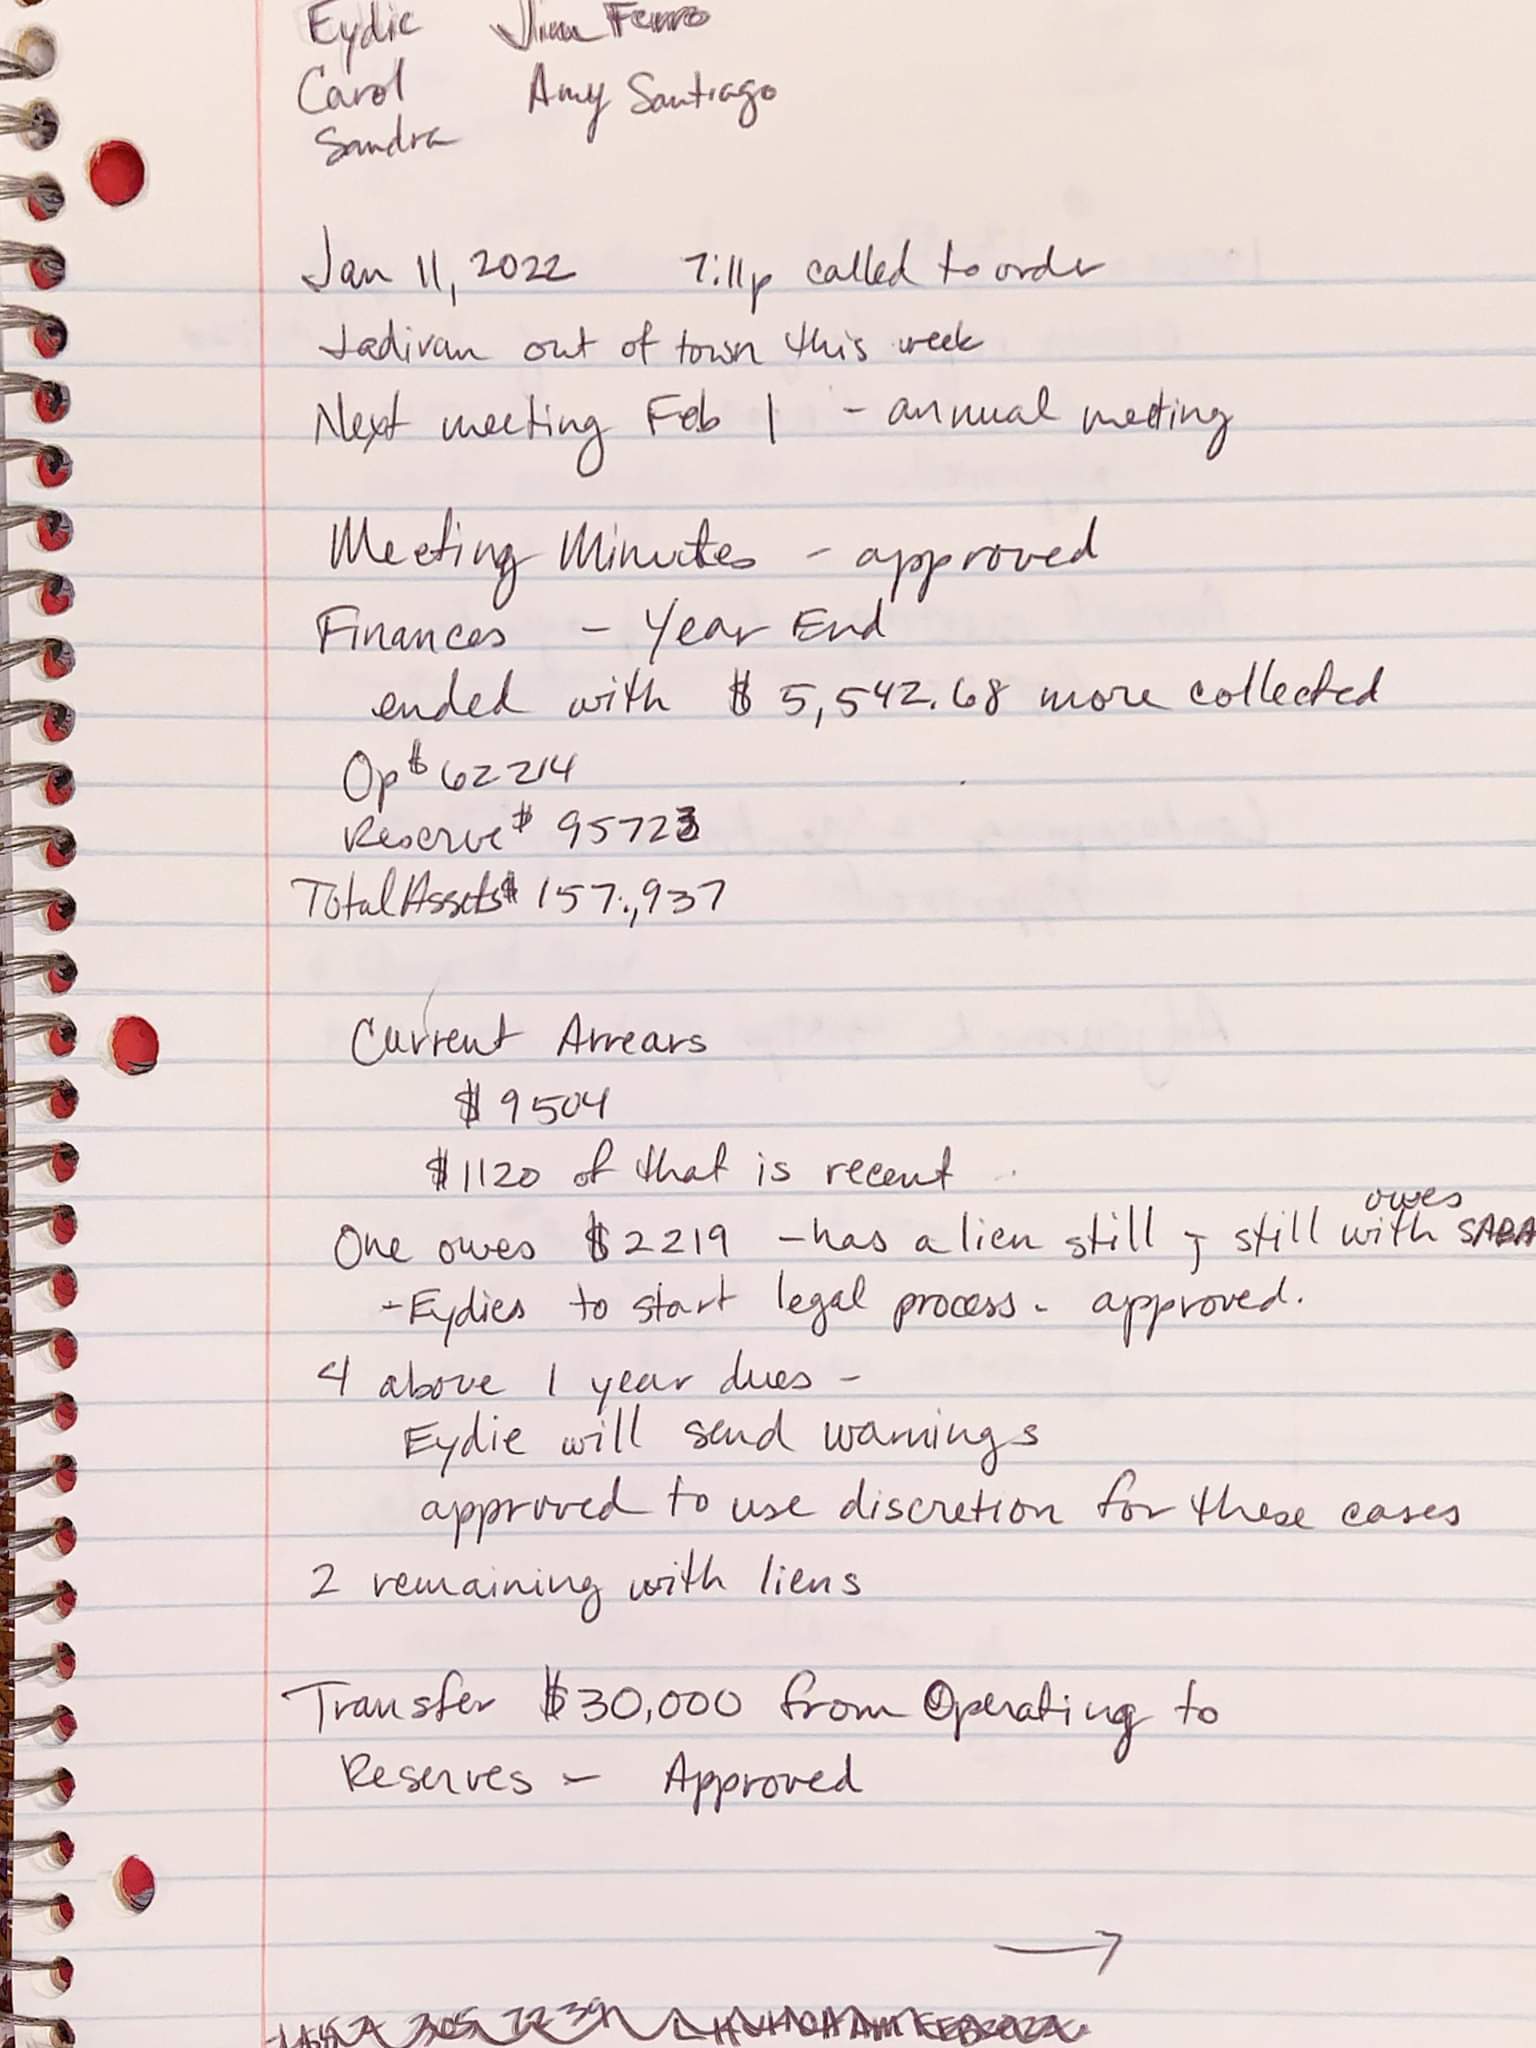 Eydie Jim Ferro
Carol Amy Santiago
Sandra
Jan 11, 2022 7:11p called to order
Jadivan out of town this week
Next meeting Feb 1 - annual meeting
Meeting Minutes - approved
Finances - Year End
ended with $ 5,542.68 more collected
Op $ 62214
Reserve $ 95723
Total Assets $ 157,937
Current Arrears
$ 9504
$1120 of that is recent
owes
One owes $2219 - has a lien still, still with
- Eydies to start legal process - approved.
4 above 1 year dues -
Eydie will send warnings
approved to use discretion for these cases
2 remaining with liens
Transfer $30,000 from Operating to
Reserves - Approved